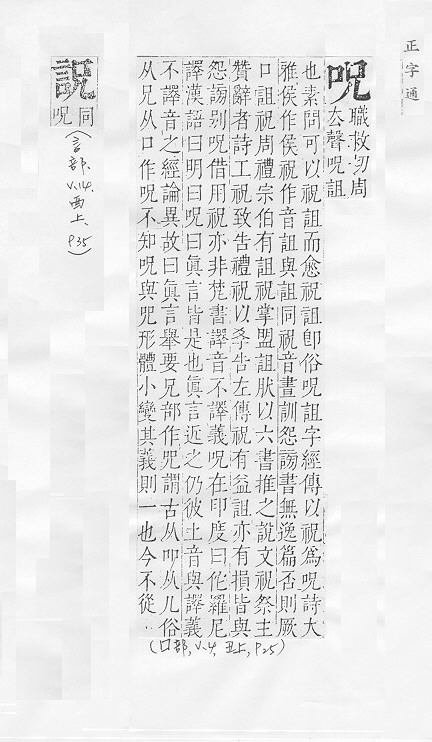 正字通
呪
職救切周
去聲呪詛
也素問可以祝詛而愈祝詛卽俗呪詛字經傳以祝爲呪詩大
雅侯作侯祝作音詛與詛同祝音晝訓怨謗書無逸篇否則厥
口詛祝周禮宗伯有詛祝掌盟詛狀以六書推之說文祝祭主
贊辭者詩工祝致告禮祝以孝告左傳祝有益詛亦有損皆與
怨謗别呪借用祝亦非梵書譯音不譯義呪在印度曰佗羅尼
譯漢語曰明曰呪曰眞言皆是也眞言近之仍彼土音與譯義
不譯音之經論異故曰眞言舉要兄部作咒謂古从吅从儿俗
从兄从口作呪不知呪與咒形體小變其義則一也今不從
(口部, V.4, 丑上, P25)
詋
同
呪
(言部, V.14, 酉上, P35)